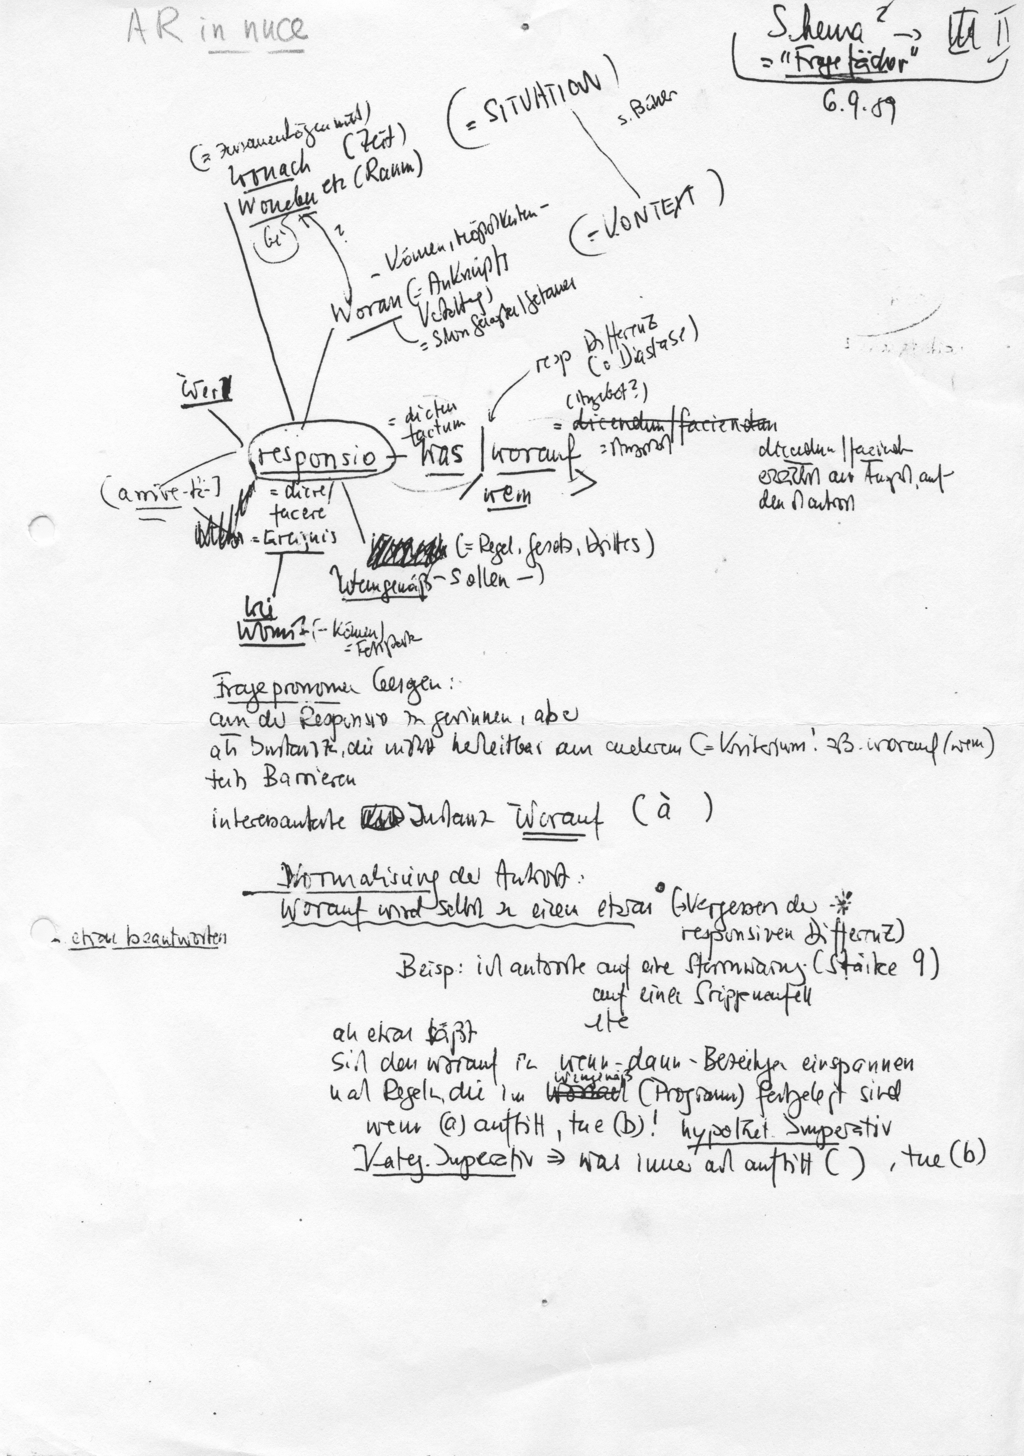 AR in nuce
Schema? → III II
= "Fragefächer"
6.9.89
(= SITUATION)
s. Bühler
(= KONTEXT)
wonach (Zeit)
woneben etc (Raum)
?
- Können, Möglichkeiten -
Woran (= Anknüpf
resp Differenz
(= Diastase)
(Angebot?)
wer
= dictum
factum
= dicendum/faciendum
responsio - was / worauf
wem
dicendum/faciendum
den ich antworte
(arrive-t-il)
= dicere/
facere
= Ereignis
(= Regel, Gesetz, Drittes)
wemgemäß - Sollen -)
wie
womit - Können/
Fragepronomen besagen:
aus der Responsio zu gewinnen, aber
als Instanz, die nicht herleitbar aus anderem (= Kriterium! zB. worauf/wem)
teils Barrieren
interessanteste Instanz Worauf (à )
Normalisierung der Antwort:
Worauf wird selbst zu einem etwas (→ Vergessen der
responsiven Differenz)
- etwas beantworten
Beisp: ich antworte auf eine Sturmwarnung (Stärke 9)
auf einen Grippeanfall
etc
als etwas läßt
sich das worauf in wenn-dann-Beziehungen einspannen
nach Regeln, die im wemgemäß (Programm) festgelegt sind
wenn (a) auftritt, tue (b)! hypothet. Imperativ
Kateg. Imperativ ⇒ was immer auch auftritt ( ), tue (b)